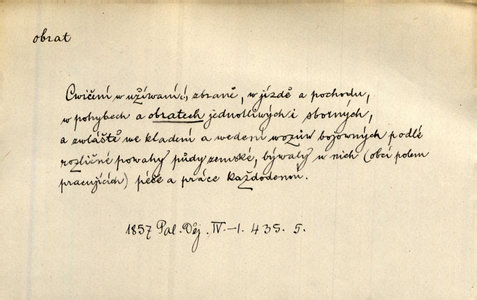 obrat
Cwičení w užíwaní zbraně, w jízdě a pochodu,
w pohybech a obratech jednotliwých i sborných,
a zwláště we kladení a wedení wozůw bojowných podlé
rozličné powahy půdy zemské, býwaly u nich (obcí polem
pracujících) péče a práce každodenní.
1857 Pal. Děj. IV-1. 435. 5.